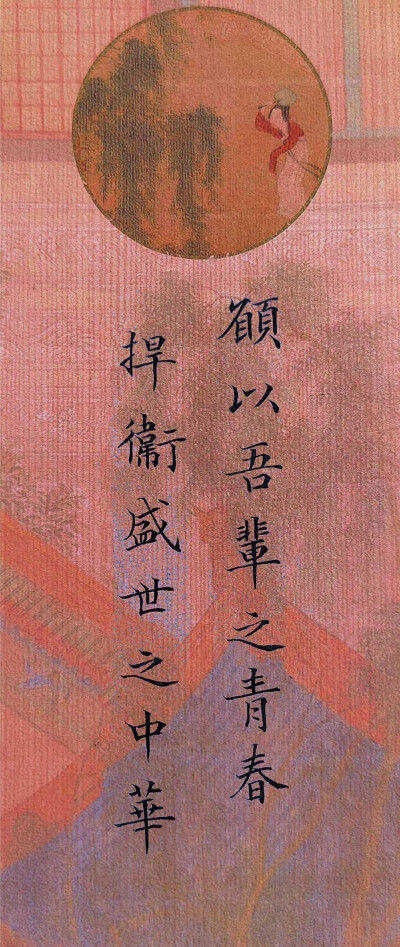 願以吾輩之青春
捍衞盛世之中華